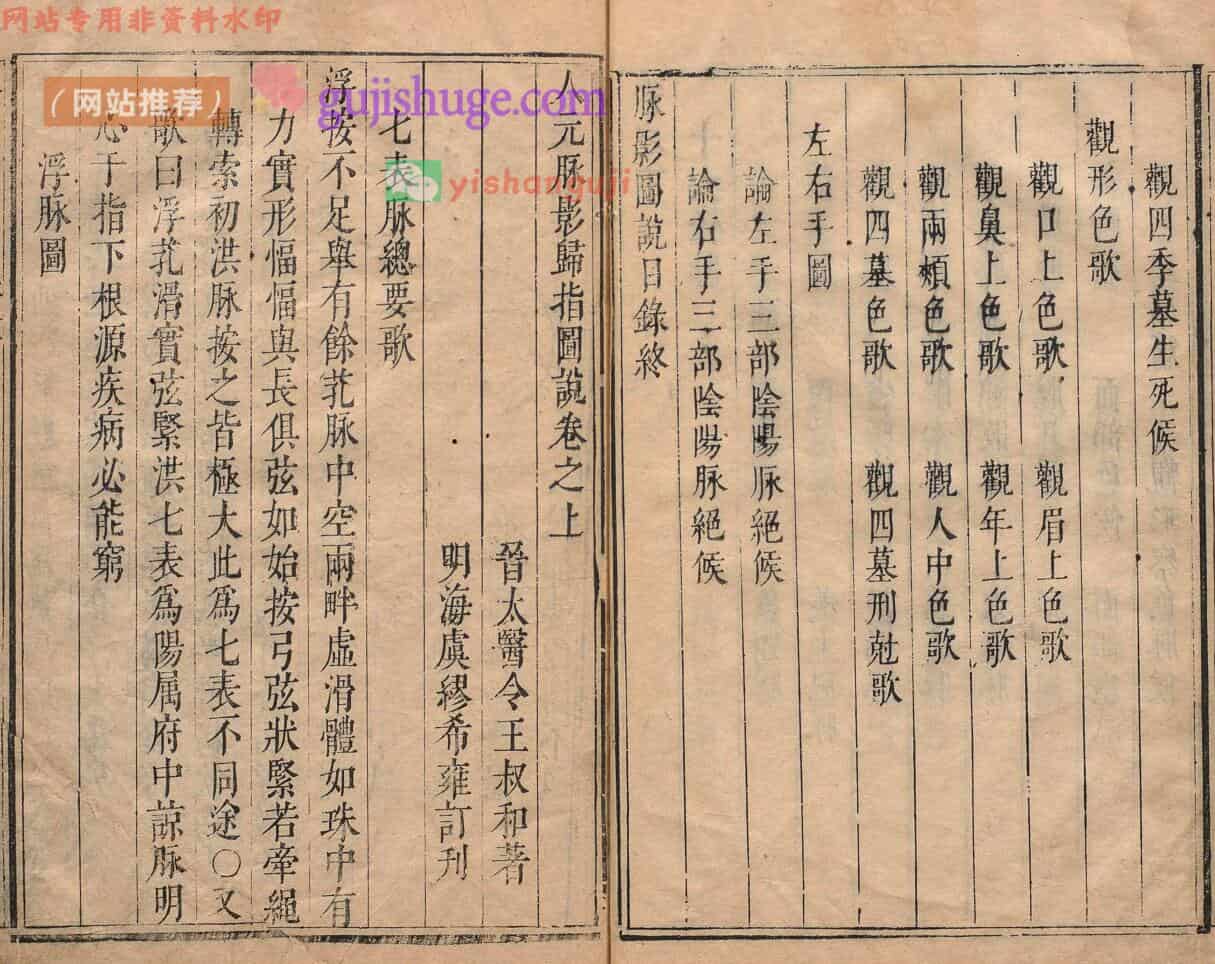 网站专用非资料水印
觀四季墓生死候
觀形色歌
觀口上色歌 觀眉上色歌
觀鼻上色歌 觀年上色歌
觀兩頰色歌 觀人中色歌
觀四墓色歌 觀四墓刑尅歌
左右手圖
論左手三部陰陽脉絕候
論右手三部陰陽脉絕候
脉影圖說目錄終
（网站推荐）
gujishuge.com
yishanguji
人元脉影歸指圖說卷之上
晉太醫令王叔和著
明海虞繆希雍訂刊
七表脉總要歌
浮按不足舉有餘芤脉中空兩畔虛滑體如珠中有
力實形愊愊與長俱弦如始按弓弦狀緊若牽繩
轉索初洪脉按之皆極大此爲七表不同途〇又
歌曰浮芤滑實弦緊洪七表爲陽属府中諒脉明
心于指下根源疾病必能窮
浮脉圖